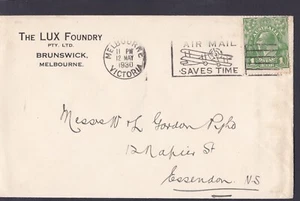 THE LUX FOUNDRY
PTY. LTD.
BRUNSWICK,
MELBOURNE.
MELBOURNE
11 PM
12 MAY
1930
VICTORIA
AIR MAIL
SAVES TIME
Messrs W & L Gordon
12 Napier St
Essendon